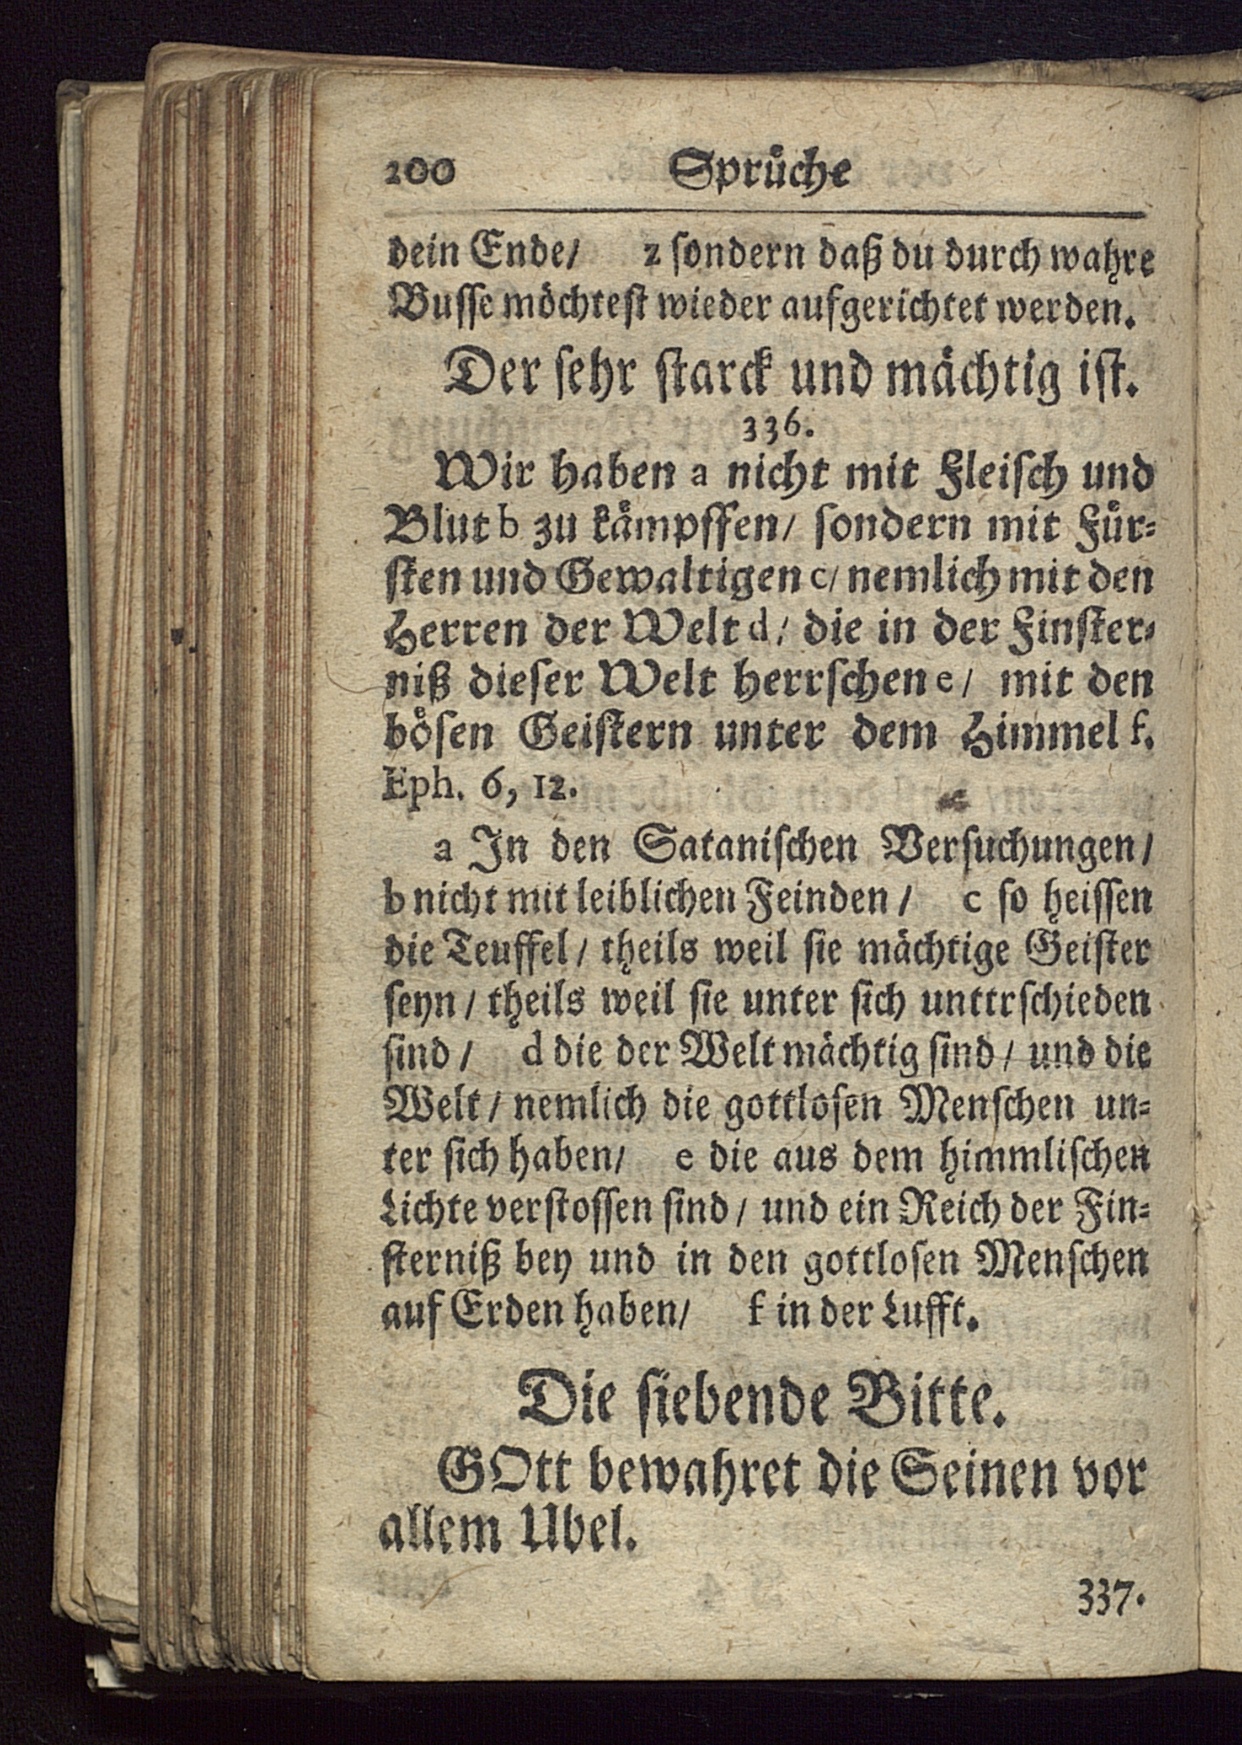 200 Sprüche
dein Ende/ z sondern daß du durch wahre
Busse möchtest wieder aufgerichtet werden.
Der sehr starck und mächtig ist.
336.
Wir haben a nicht mit Fleisch und
Blut b zu kämpffen/ sondern mit Für-
sten und Gewaltigen c/ nemlich mit den
Herren der Welt d/ die in der Finster-
niß dieser Welt herrschen e/ mit den
bösen Geistern unter dem Himmel f.
Eph. 6, 12.
a In den Satanischen Versuchungen/
b nicht mit leiblichen Feinden/ c so heissen
die Teuffel/ theils weil sie mächtige Geister
seyn/ theils weil sie unter sich unttrschieden
sind/ d die der Welt mächtig sind/ und die
Welt/ nemlich die gottlosen Menschen un-
ter sich haben/ e die aus dem himmlischen
Lichte verstossen sind/ und ein Reich der Fin-
sterniß bey und in den gottlosen Menschen
auf Erden haben/ f in der Lufft.
Die siebende Bitte.
GOtt bewahret die Seinen vor
allem Ubel.
337.